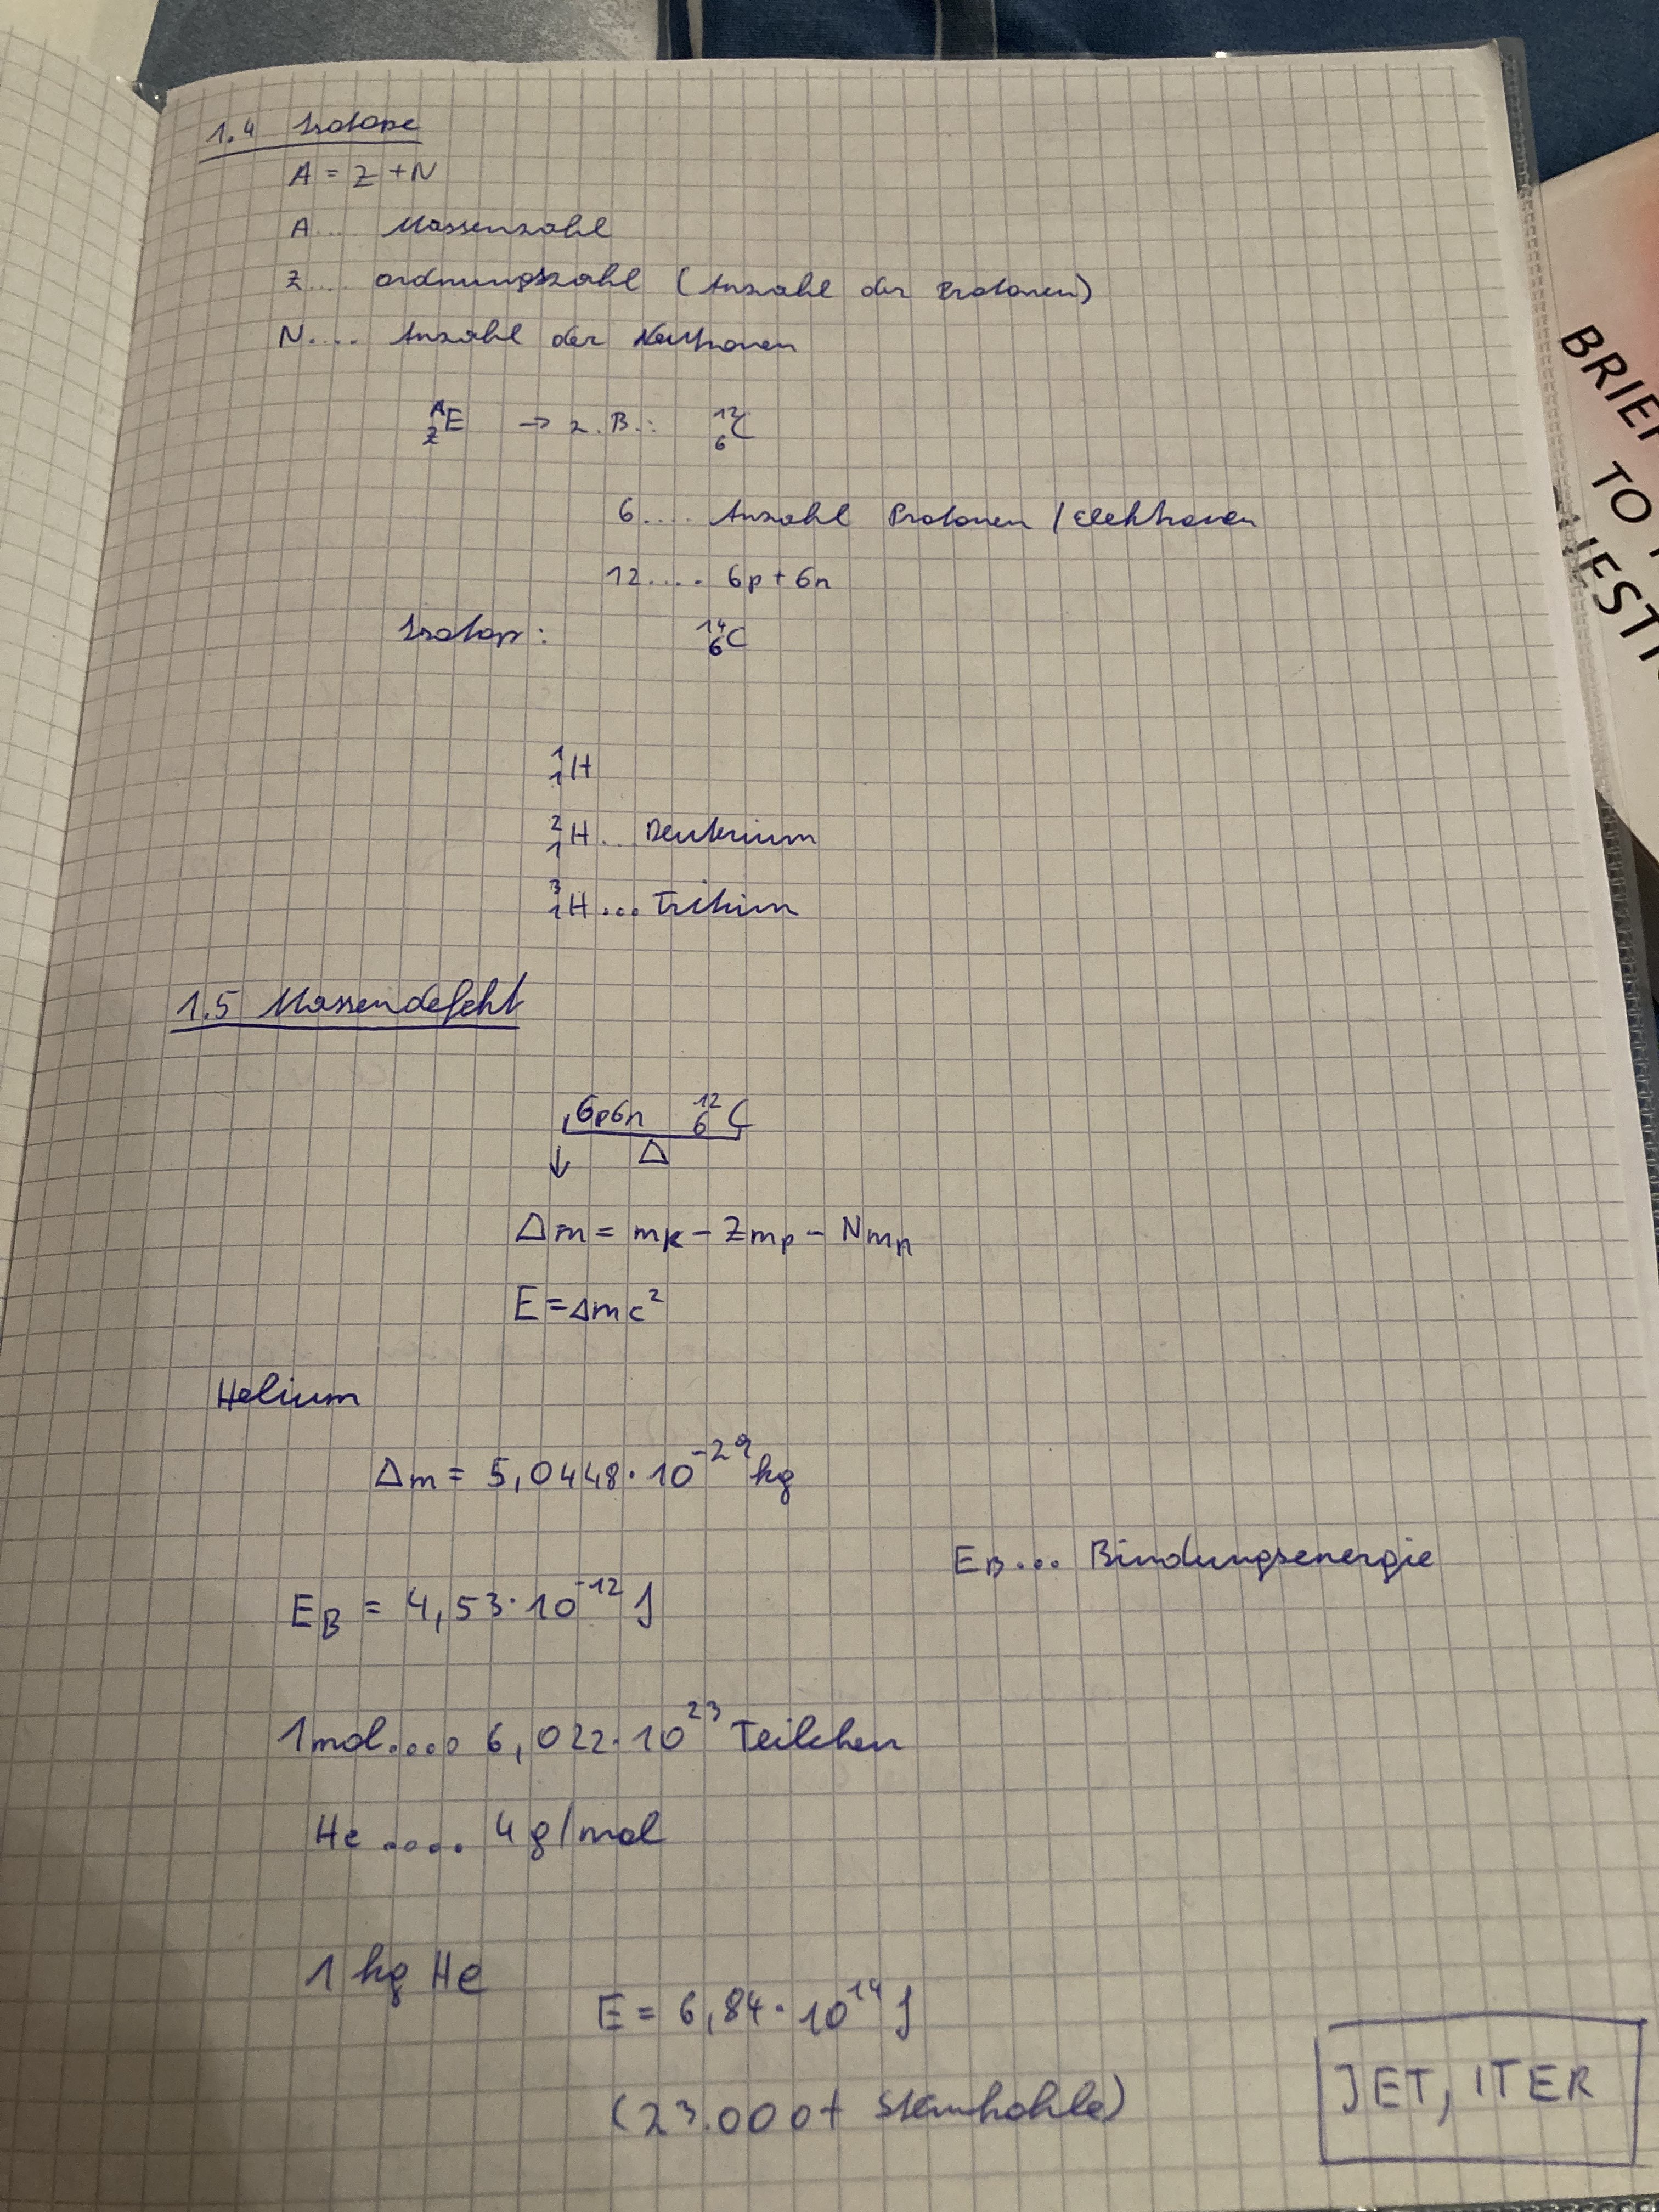 1.4 Isotope
A = Z + N
A... Massenzahl
Z.... Ordnungszahl (Anzahl der Protonen)
N.... Anzahl der Neutronen
A
Z E → z.B.: 12
6 C
6.... Anzahl Protonen / Elektronen
12.... 6p + 6n
Isotop: 14
6 C
1
1 H
2
1 H... Deuterium
3
1 H... Tritium
1.5 Massendefekt
6p6n 12
6 C
Δ
Δm = mk - Zmp - Nmn
E = Δmc²
Helium
Δm = 5,0448·10⁻²⁹ kg
EB... Bindungsenergie
EB = 4,53·10⁻¹² J
1mol.... 6,022·10²³ Teilchen
He .... 4g/mol
1 kg He
E = 6,84·10¹⁴ J
(23.000t Steinkohle)
JET, ITER
BRIEF
TO